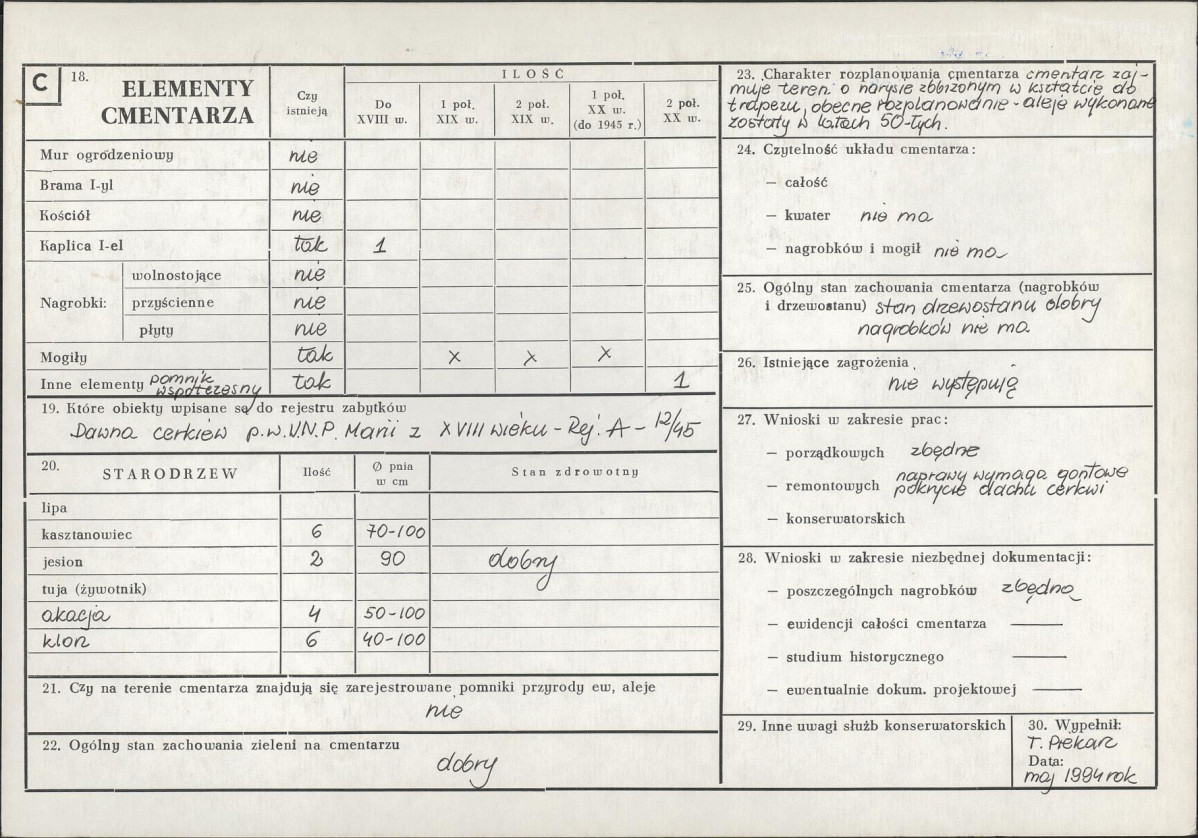 C
18.
ELEMENTY
CMENTARZA
Czy
istnieją
ILOŚĆ
Do
XVIII w.
1 poł.
XIX w.
2 poł.
XIX w.
1 poł.
XX w.
(do 1945 r.)
2 poł.
XX w.
Mur ogrodzeniowy nie
Brama I-yl nie
Kościół nie
Kaplica I-el tak 1
Nagrobki:
wolnostojące nie
przyścienne nie
płyty nie
Mogiły tak x x x
Inne elementy pomnik współczesny tak 1
19. Które obiekty wpisane są do rejestru zabytków
Dawna cerkiew p.w. N.P. Marii z XVIII wieku - Rej. A - 12/45
20.
STARODRZEW
Ilość
Ø pnia
w cm
Stan zdrowotny
lipa
kasztanowiec 6 70-100
jesion 2 90 dobry
tuja (żywotnik)
akacja 4 50-100
klon 6 40-100
21. Czy na terenie cmentarza znajdują się zarejestrowane pomniki przyrody ew, aleje
nie
22. Ogólny stan zachowania zieleni na cmentarzu
dobry
23. Charakter rozplanowania cmentarza cmentarz zaj-
muje teren o narysie zbliżonym w kształcie do
trapezu, obecne rozplanowanie - aleje wykonane
zostały w latach 50-tych.
24. Czytelność układu cmentarza:
— całość
— kwater nie ma
— nagrobków i mogił nie ma
25. Ogólny stan zachowania cmentarza (nagrobków
i drzewostanu) stan drzewostanu dobry
nagrobków nie ma
26. Istniejące zagrożenia
nie występują
27. Wnioski w zakresie prac:
— porządkowych zbędne
— remontowych naprawy wymaga gontowe
pokrycie dachu cerkwi
— konserwatorskich
28. Wnioski w zakresie niezbędnej dokumentacji:
— poszczególnych nagrobków zbędna
— ewidencji całości cmentarza ———
— studium historycznego ———
— ewentualnie dokum. projektowej ———
29. Inne uwagi służb konserwatorskich
30. Wypełnił:
T. Piekarz
Data:
maj 1994 rok